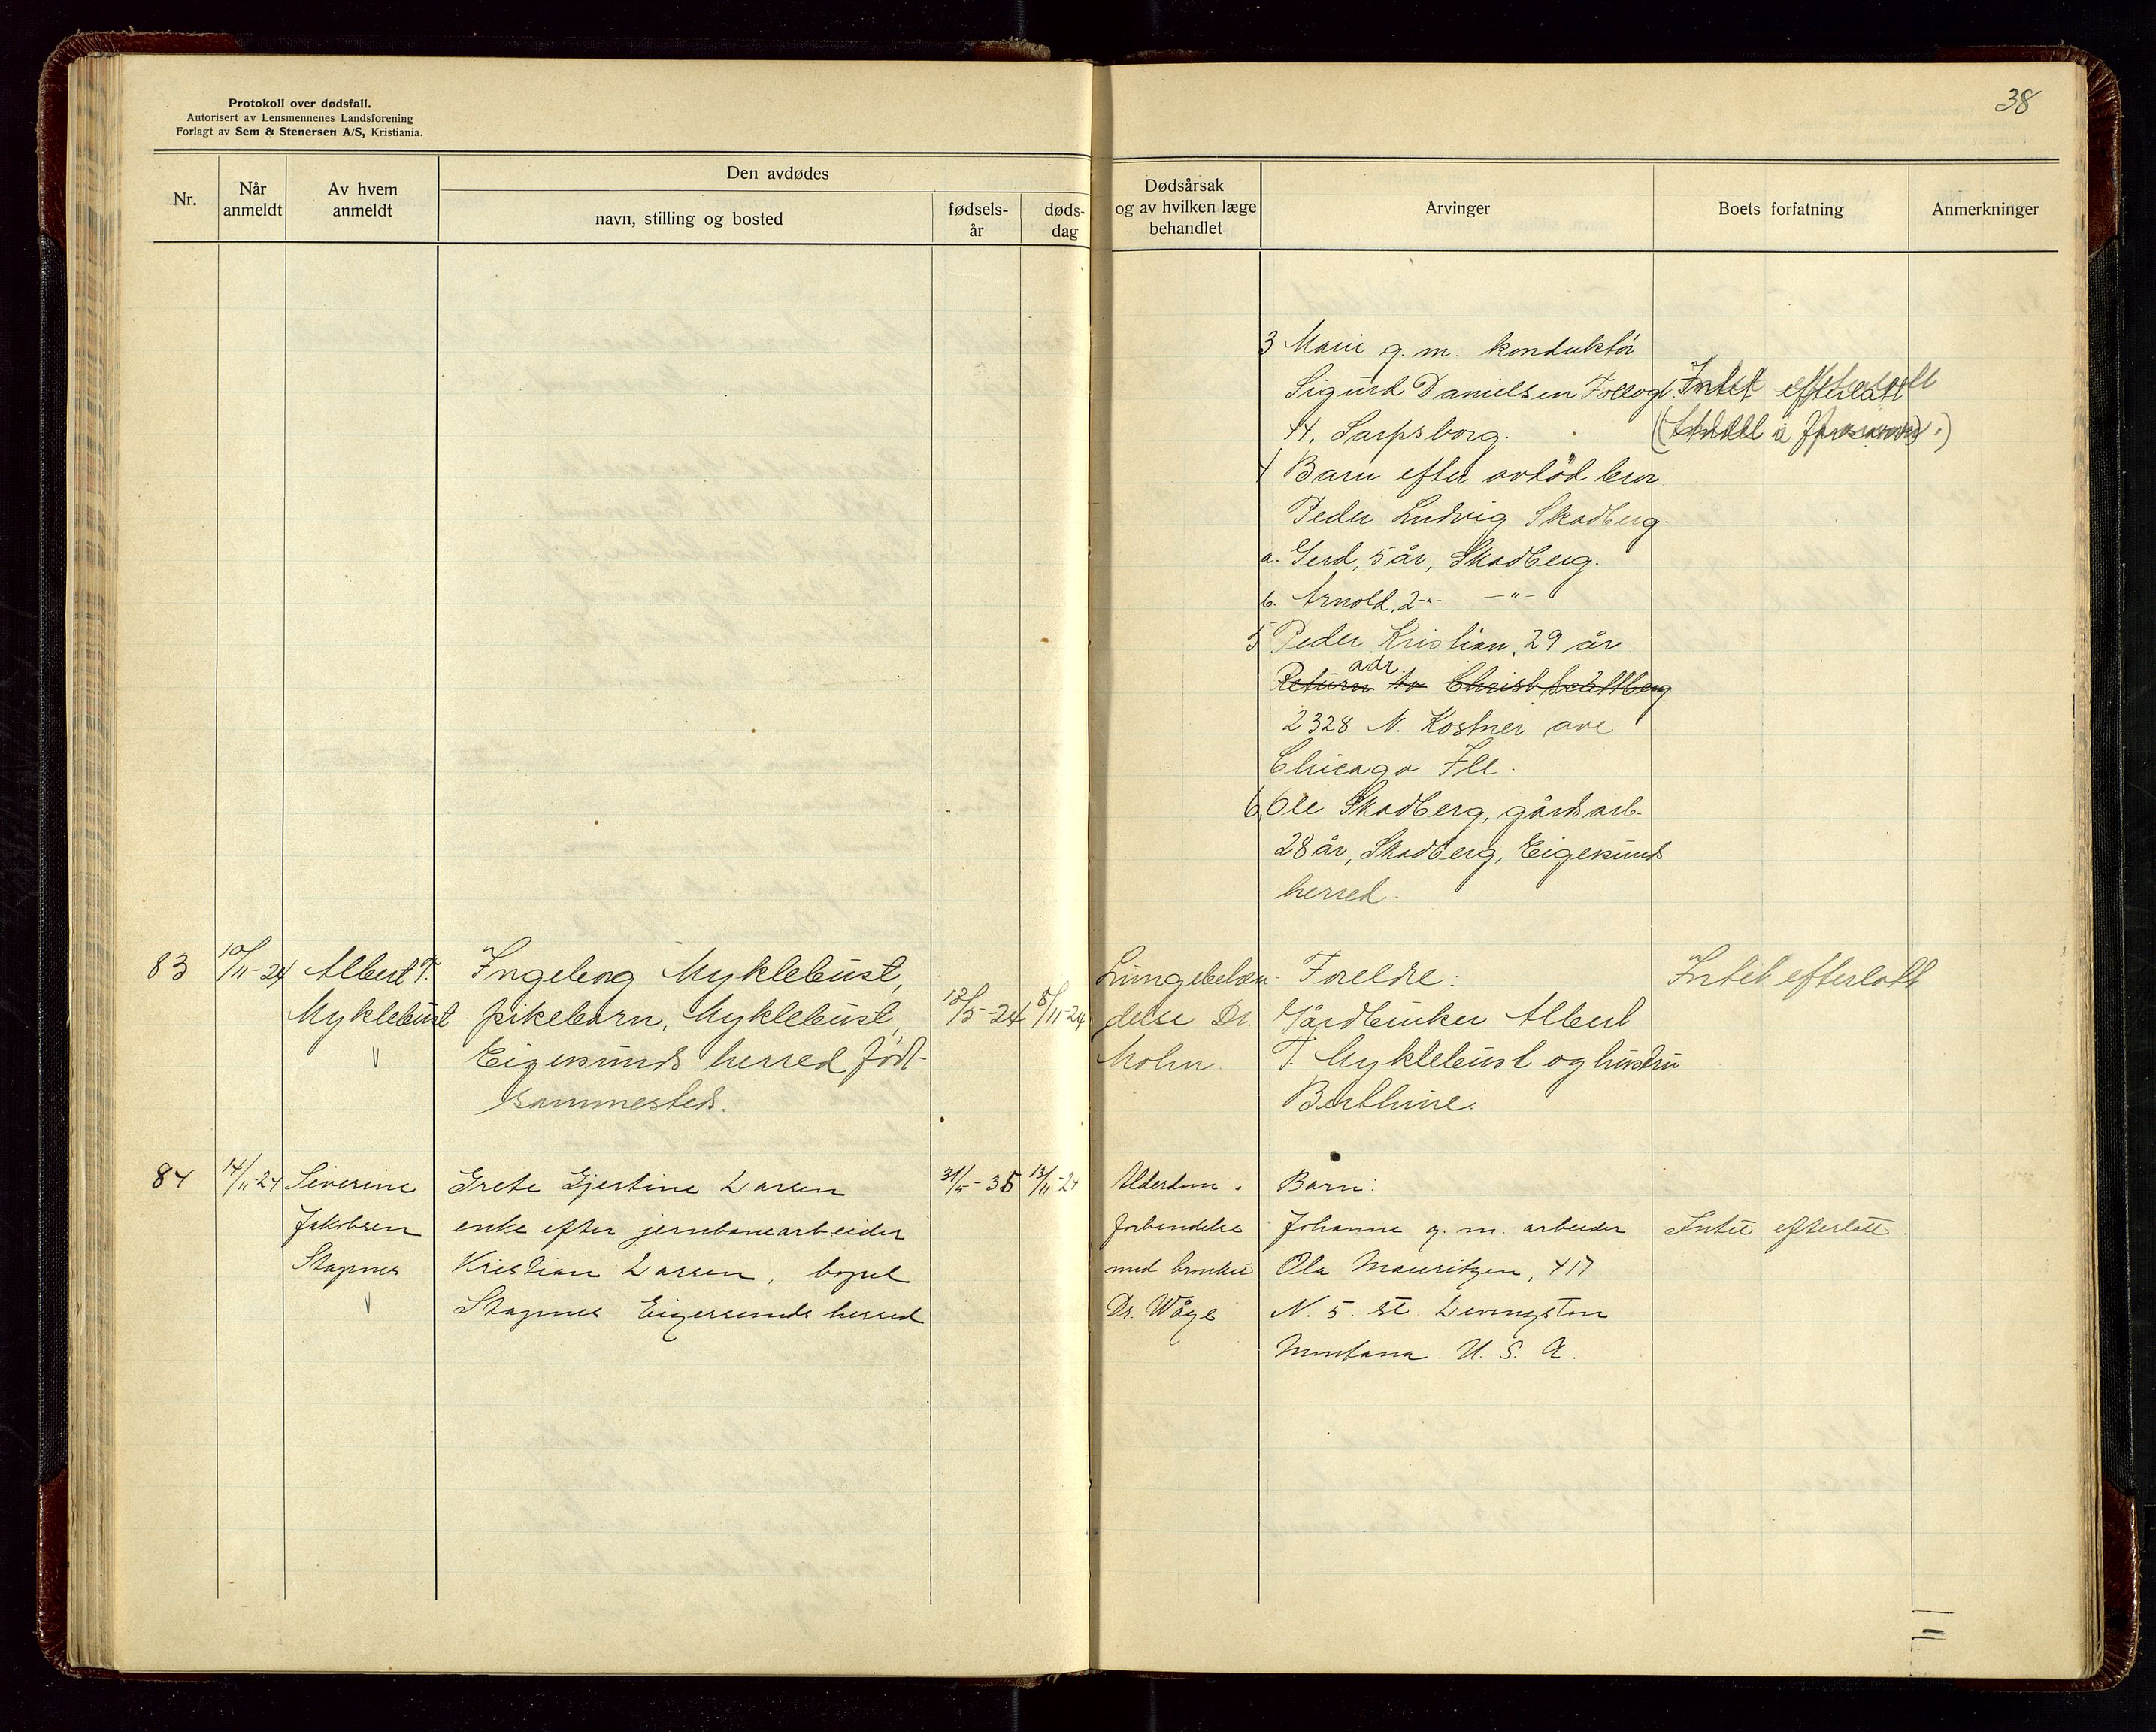 Protokoll over dødsfall.
Autorisert av Lensmennenes Landsforening
Forlagt av Sem & Stenersen A/S, Kristiania.
38
Nr.
Når anmeldt
Av hvem anmeldt
Den avdødes
navn, stilling og bosted
fødsels-år
døds-dag
Dødsårsak og av hvilken læge behandlet
Arvinger
Boets forfatning
Anmerkninger
3 Marie g. m. konduktør
Sigurd Danielsen
44, Sarpsborg.
Intet efterlatt
4 Barn efter avdød bror
Peder Ludvig Skadberg.
a. Gerd, 5 år, Skadberg.
b. Arnold, 2 -"- -"-
5 Peder Kristian, 29 år
adr.
Return to Christ
2328 N. Kostner ave
Chicago Ill.
6, Ole Skadberg, gårdsarb.
28 år, Skadberg, Eigersunds
herred.
83
10/11-24
Albert T.
Myklebust
Ingeborg Myklebust,
pikebarn, Myklebust,
Eigersunds herred født
sammesteds.
12/5-24
8/11-24
Lungebeten-
delse Dr.
Molin
Foreldre:
Gårdbruker Albert
T. Myklebust og hustru
Berthine.
Intet efterlatt
84
14/11-24
Severine
Jakobsen
Stapnes
Grete Gjertine Larsen
enke efter jernbanearbeider
Kristian Larsen, bopel
Stapnes Eigersunds herred
31/5-35
13/11-24
Alderdom i
forbindelse
med bronkit
Dr. Våge
Barn:
Johanne g. m. arbeider
Ola Mauritzen, 417
N. 5. st Livingston
Montana U. S. A.
Intet efterlatt.